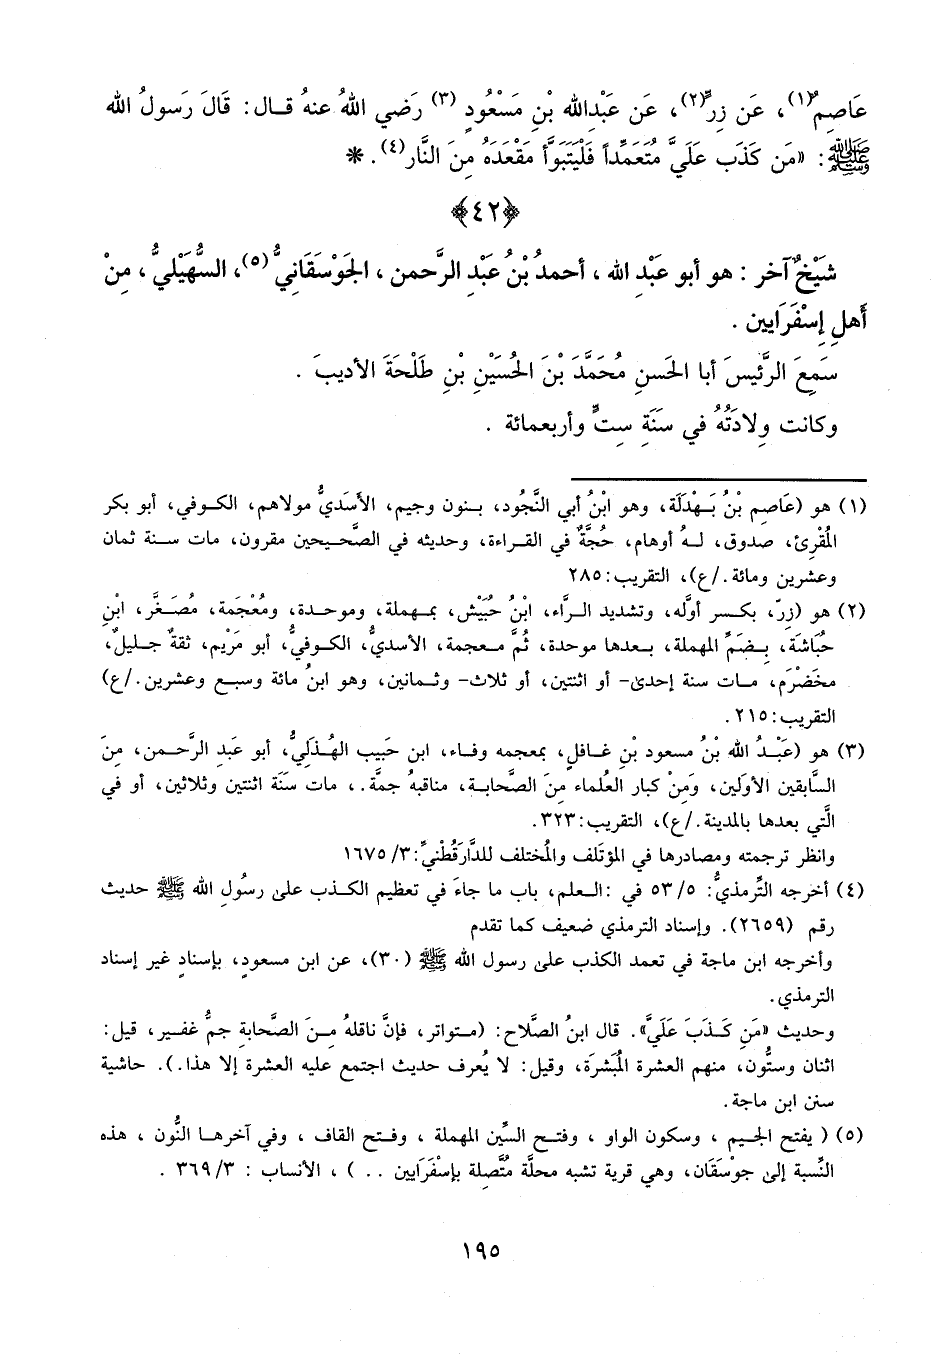 عَاصِمٌ(١)، عَن زِرٍّ(٢)، عَن عَبْدِالله بْنِ مَسْعُودٍ(٣) رَضي اللهُ عنهُ قـال: قَالَ رَسولُ الله
ﷺ: «مَن كَذَب عَلَيَّ مُتَعَمِّداً فَلْيَتَبَوَّأ مَقْعَدَهُ مِنَ النَّار(٤). *
﴿٤٢﴾
شَيْخٌ آخر : هو أبو عَبْدِ الله ، أحمدُ بْنُ عَبْدِ الرَّحمن ، الجَوْسَقَانِيُّ(٥)، السُّهَيْلِيُّ ، مِنْ
أَهلِ إِسْفَرَايين .
سَمِعَ الرَّئيسَ أبا الحَسنِ مُحَمَّدَ بْنَ الحُسَيْنِ بْنِ طَلْحَةَ الأديبَ .
وكانت وِلادَتُهُ في سَنَةِ ستٍّ وأربعمائة .
(١) هو (عَاصِم بْنُ بَـهْدَلَة، وهو ابْنُ أبي النَّجُود، بـنون وجيم، الأسَديُّ مولاهم، الكـوفي، أبو بكر
المُقْرِئ، صدوق، لـهُ أوهام، حُجَّةٌ في القـراءة، وحديثه في الصَّحـيحين مقرون، مات سـنة ثمان
وعشرين ومائة./ع)، التقريب:٢٨٥
(٢) هو (زِرّ، بكسر أوَّله، وتشديد الـرَّاء، ابْنُ حُبَيْش، بـمهملة، وموحدة، ومُعْجَمة، مُصَـغَّر، ابْنِ
حُبَاشَة، بِـضَمِّ المهملة، بـعدها موحدة، ثُمَّ مـعجمة، الأسديُّ، الكـوفيُّ، أبو مَرْيم، ثقةٌ جـليل،
مخَضْرَم، مـات سنة إحدىٰ- أو اثنتين، أو ثلاث- وثـمانين، وهو ابنُ مائة وسبـع وعشرين./ع)
التقريب:٢١٥.
(٣) هو (عَبْـدُ الله بْنُ مسعود بْنِ غـافل، بمعجمه وفـاء، ابن حَبيب الهُـذَليُّ، أبو عَبد الرَّحـمن، مِنَ
السَّابقين الأوّلين، وَمِنْ كبار العُلماء مِنَ الصَّحابـة، مناقبهُ جمَّة.، مات سَنَة اثنتين وثلاثين، أو في
الَّتي بعدها بالمدينة./ع)، التقريب:٣٢٣.
وانظر ترجمته ومصادرها في المؤتَلف والمُختلف للدَّارَقُطْنيِّ:٣/ ١٦٧٥
(٤) أخرجه التِّرمذيُّ: ٥/ ٥٣ في :الـعلم، باب ما جاءَ في تعظيم الكـذب على رسُولِ الله ﷺ حديث
رقم (٢٦٥٩). وإسناد الترمذي ضعيف كما تقدم
وأخرجه ابن ماجة في تعمد الكذب على رسول الله ﷺ (٣٠)، عن ابن مسعود، بإسنادٍ غير إسناد
الترمذي.
وحديث «مَنِ كَـذَبَ عَلَيَّ». قال ابنُ الصَّلاح: (مـتواتر، فإنَّ ناقلهُ مِـنَ الصَّحابةِ جمٌّ غفـير، قيل:
اثنان وستُّون، منهم العشرة المُبَشَرَة، وقيل: لا يُعرف حديث اجتمع عليه العشرة إلا هذا.). حاشية
سنن ابن ماجة.
(٥) ( يفتح الجـيم ، وسكون الواو ، وفتـح السِّين المهملة ، وفتـح القاف ، وفي آخرهـا النُّون ، هذه
النِّسبة إلى جوْسَقَان، وهي قرية تشبه محلّة مُتَّصِلة بإسْفَرَايين .. ) ، الأنساب : ٣/ ٣٦٩ .
١٩٥